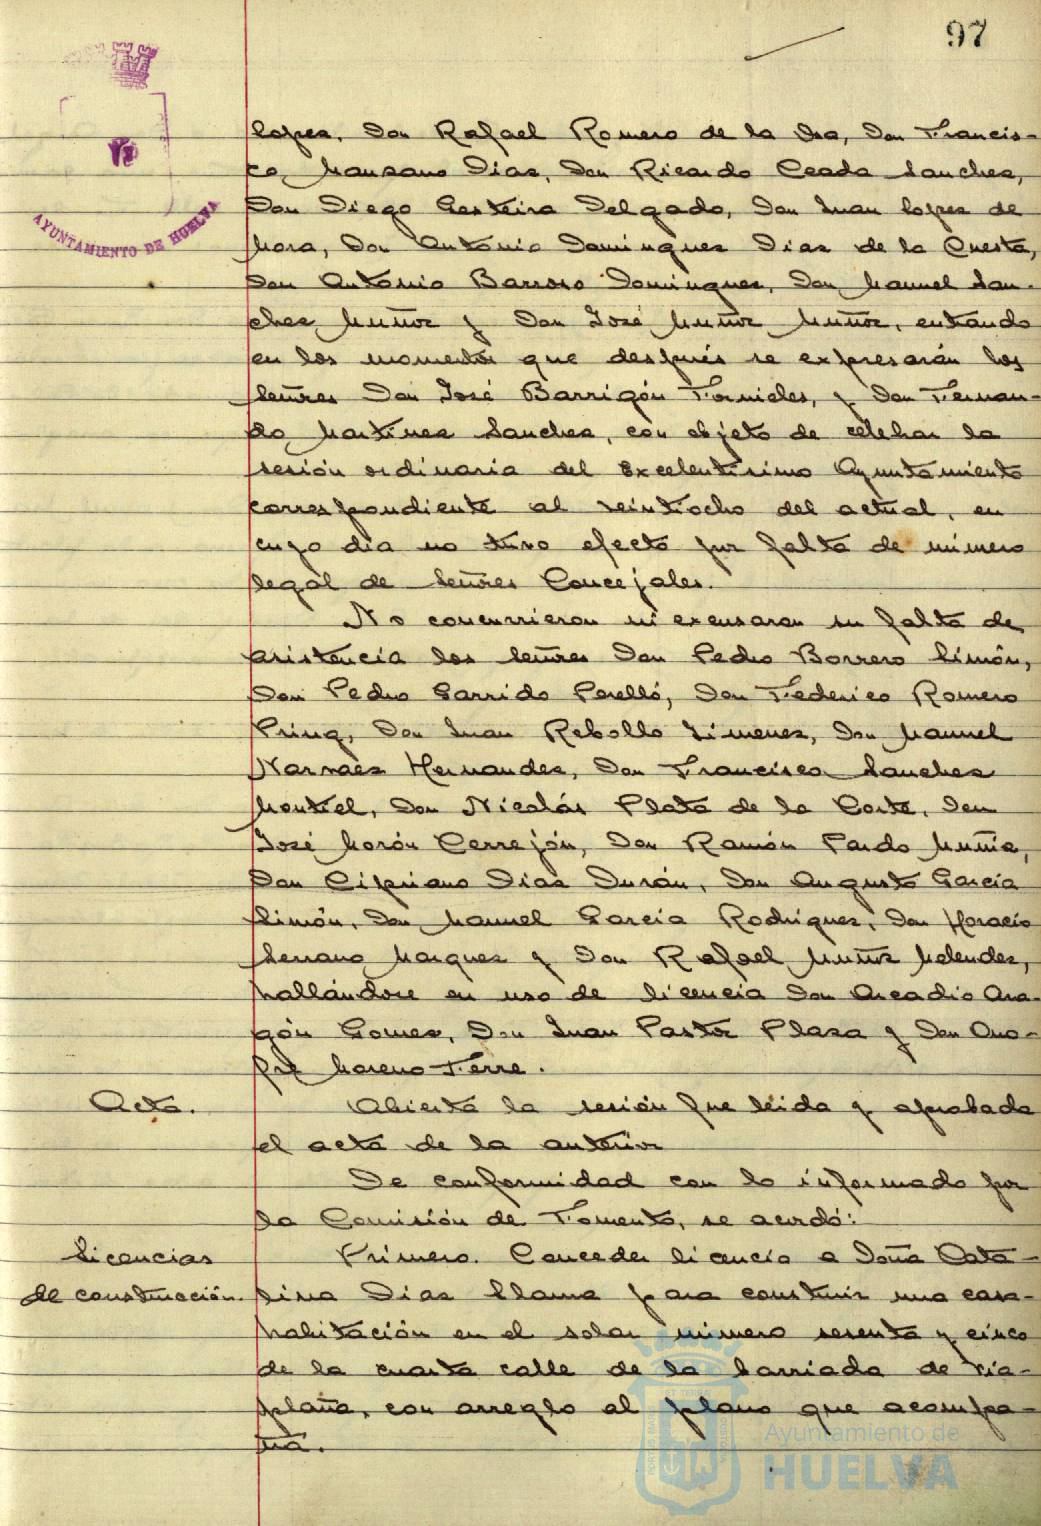 97
AYUNTAMIENTO DE HUELVA
lopez, Don Rafael Romero de la Osa, Don Francis-
co Manzano Dias, Don Ricardo Ceada Sanchez,
Don Diego Gesteira Delgado, Don Juan lopez de
Mora, Don Antonio Dominguez Dias de la Cuesta,
Don Antonio Barroso Dominguez, Don Manuel San-
chez Muñoz y Don José Muñoz Muñoz, entrando
en los momentos que después se expresarán los
señores Don José Barrigón Fornieles, y Don Fernan-
do Martinez Sanchez, con objeto de celebrar la
sesión ordinaria del Excelentísimo Ayuntamiento
correspondiente al veintiocho del actual, en
cuyo dia no tuvo efecto por falta de número
legal de señores Concejales.
No concurrieron ni excusaron su falta de
asistencia los señores Don Pedro Borrero Simón,
Don Pedro Garrido Perelló, Don Federico Romero
Don Juan Rebollo Jimenez, Don Manuel
Narvaez Hernandez, Don Francisco Sanchez
Montiel, Don Nicolás Plata de la Corte, Don
José Morón Cerrejón, Don Ramón Pardo
Don Cipriano Dias Durán, Don Augusto García
Simón, Don Manuel García Rodriguez, Don Horacio
Serrano Marquez y Don Rafael Muñoz Melendez,
hallándose en uso de licencia Don Arcadio Ara-
gón Gomez, Don Juan Pastor Plaza y Don Ono-
fre Moreno Ferre.
Acta.
Abierta la sesión fue leida y aprobada
el acta de la anterior
De conformidad con lo informado por
la Comisión de Fomento, se acordó:
Licencias
de construcción.
Primero. Conceder licencia a Doña Cata-
lina Dias Llama para construir una casa-
habitación en el solar número sesenta y cinco
de la cuarta calle de la barriada de Via-
plana, con arreglo al plano que acompa-
ña.
Ayuntamiento de
HUELVA